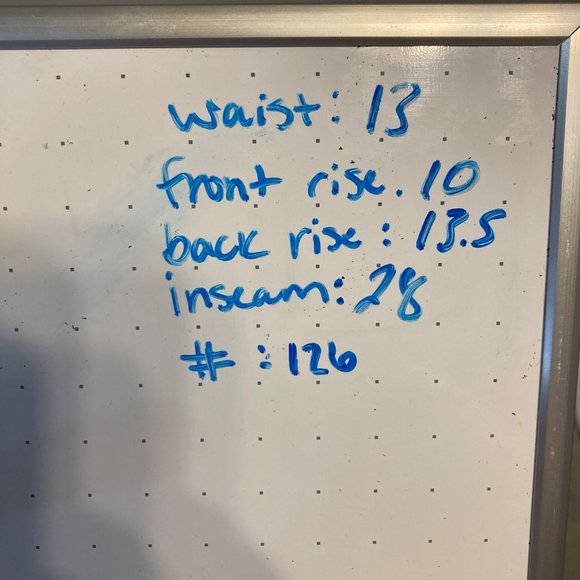 waist: 13
front rise. 10
back rise: 13.5
inseam: 28
# : 126